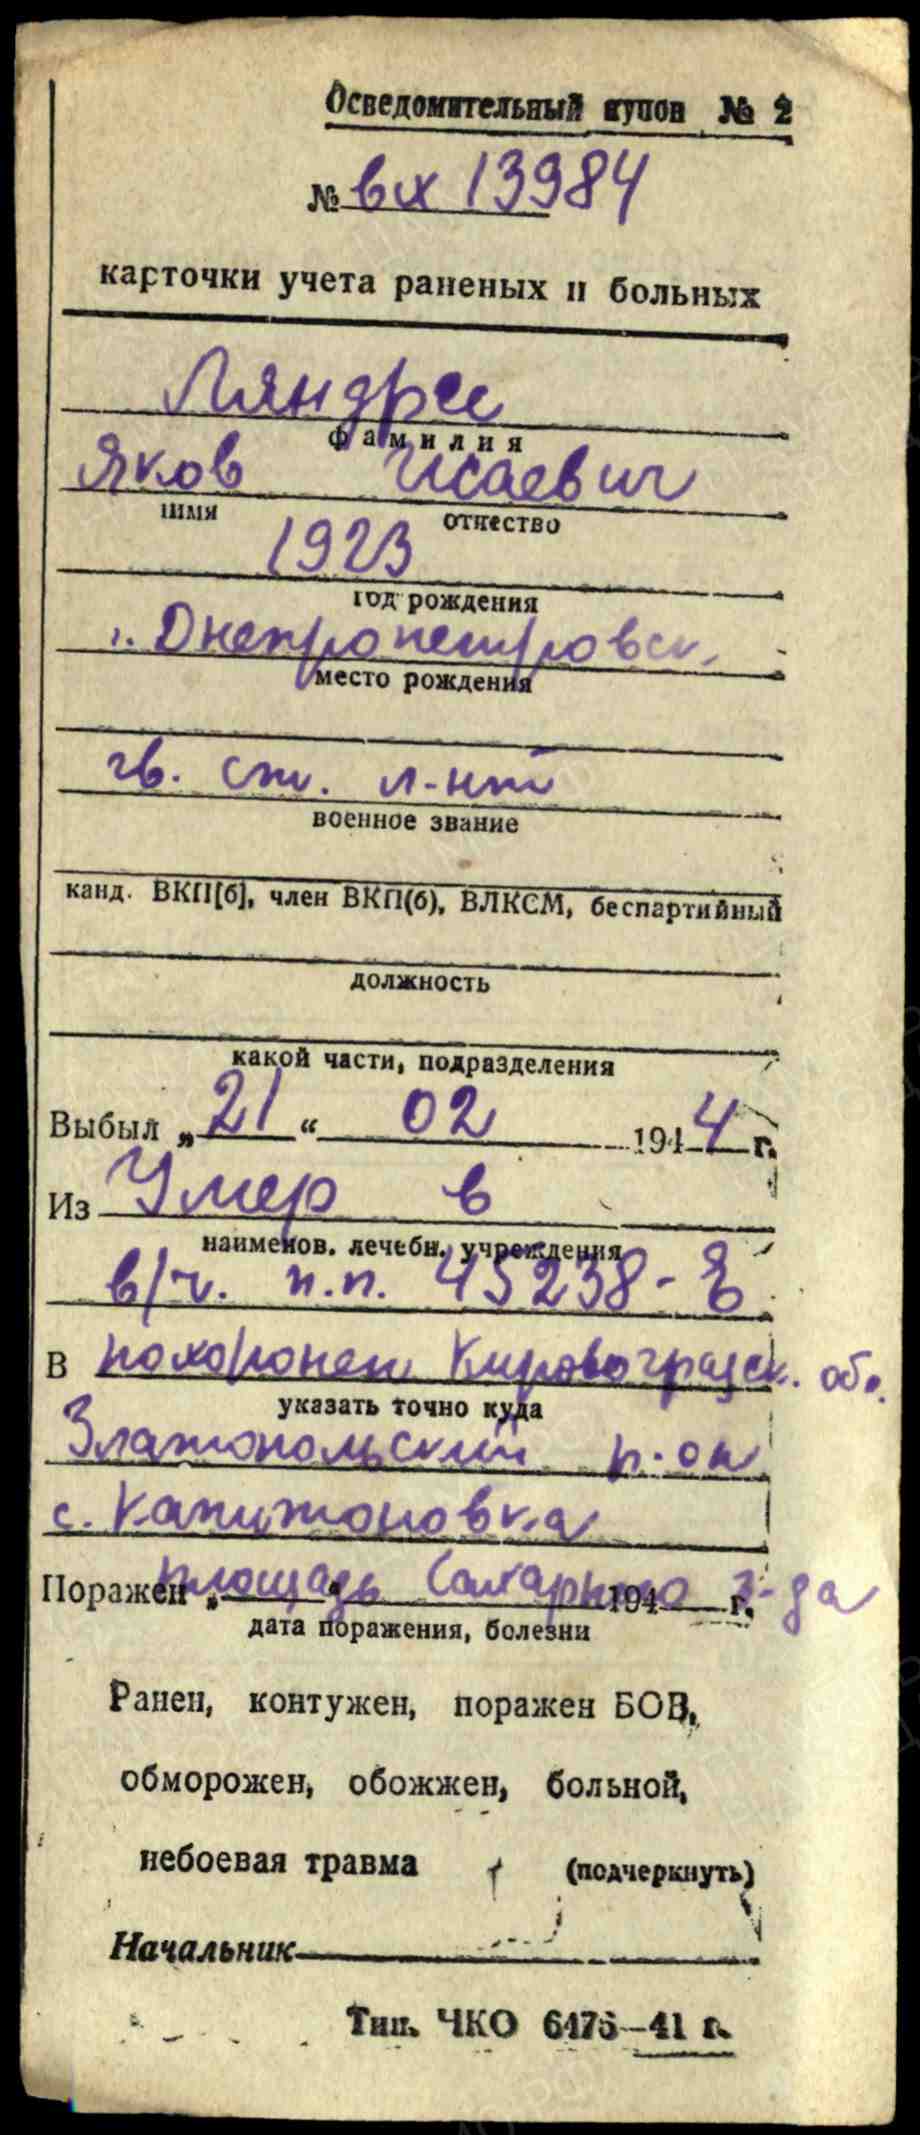 Осведомительный купон № 2
№ вх 13984
карточки учета раненых и больных
Ляндрес
фамилия
Яков Исаевич
имя отчество
1923
год рождения
г. Днепропетровск.
место рождения
гв. ст. л-нт
военное звание
канд. ВКП[б], член ВКП(б), ВЛКСМ, беспартийный
должность
какой части, подразделения
Выбыл „21“ 02 1944 г.
Из Умер в
наименов. лечебн. учреждения
в/ч. п.п. 45238-Я
В похоронен Кировоградск. обл.
указать точно куда
Златопольский р-он
с. Капитоновка
площадь Сахарного з-да
Поражен „ “ 194 г.
дата поражения, болезни
Ранен, контужен, поражен БОВ,
обморожен, обожжен, больной,
небоевая травма (подчеркнуть)
Начальник
Тип. ЧКО 6475—41 г.